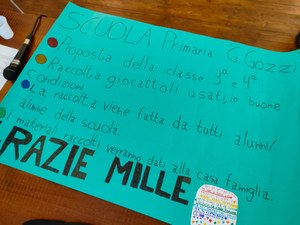 SCUOLA Primaria G. Gozzi
Proposta della classe 3ª e 4ª
Raccolta giocattoli usati, in buone
condizioni
La raccolta viene fatta da tutti alunni/
alunne della scuola.
materiali raccolti verranno dati alla casa famiglia.
RAZIE MILLE